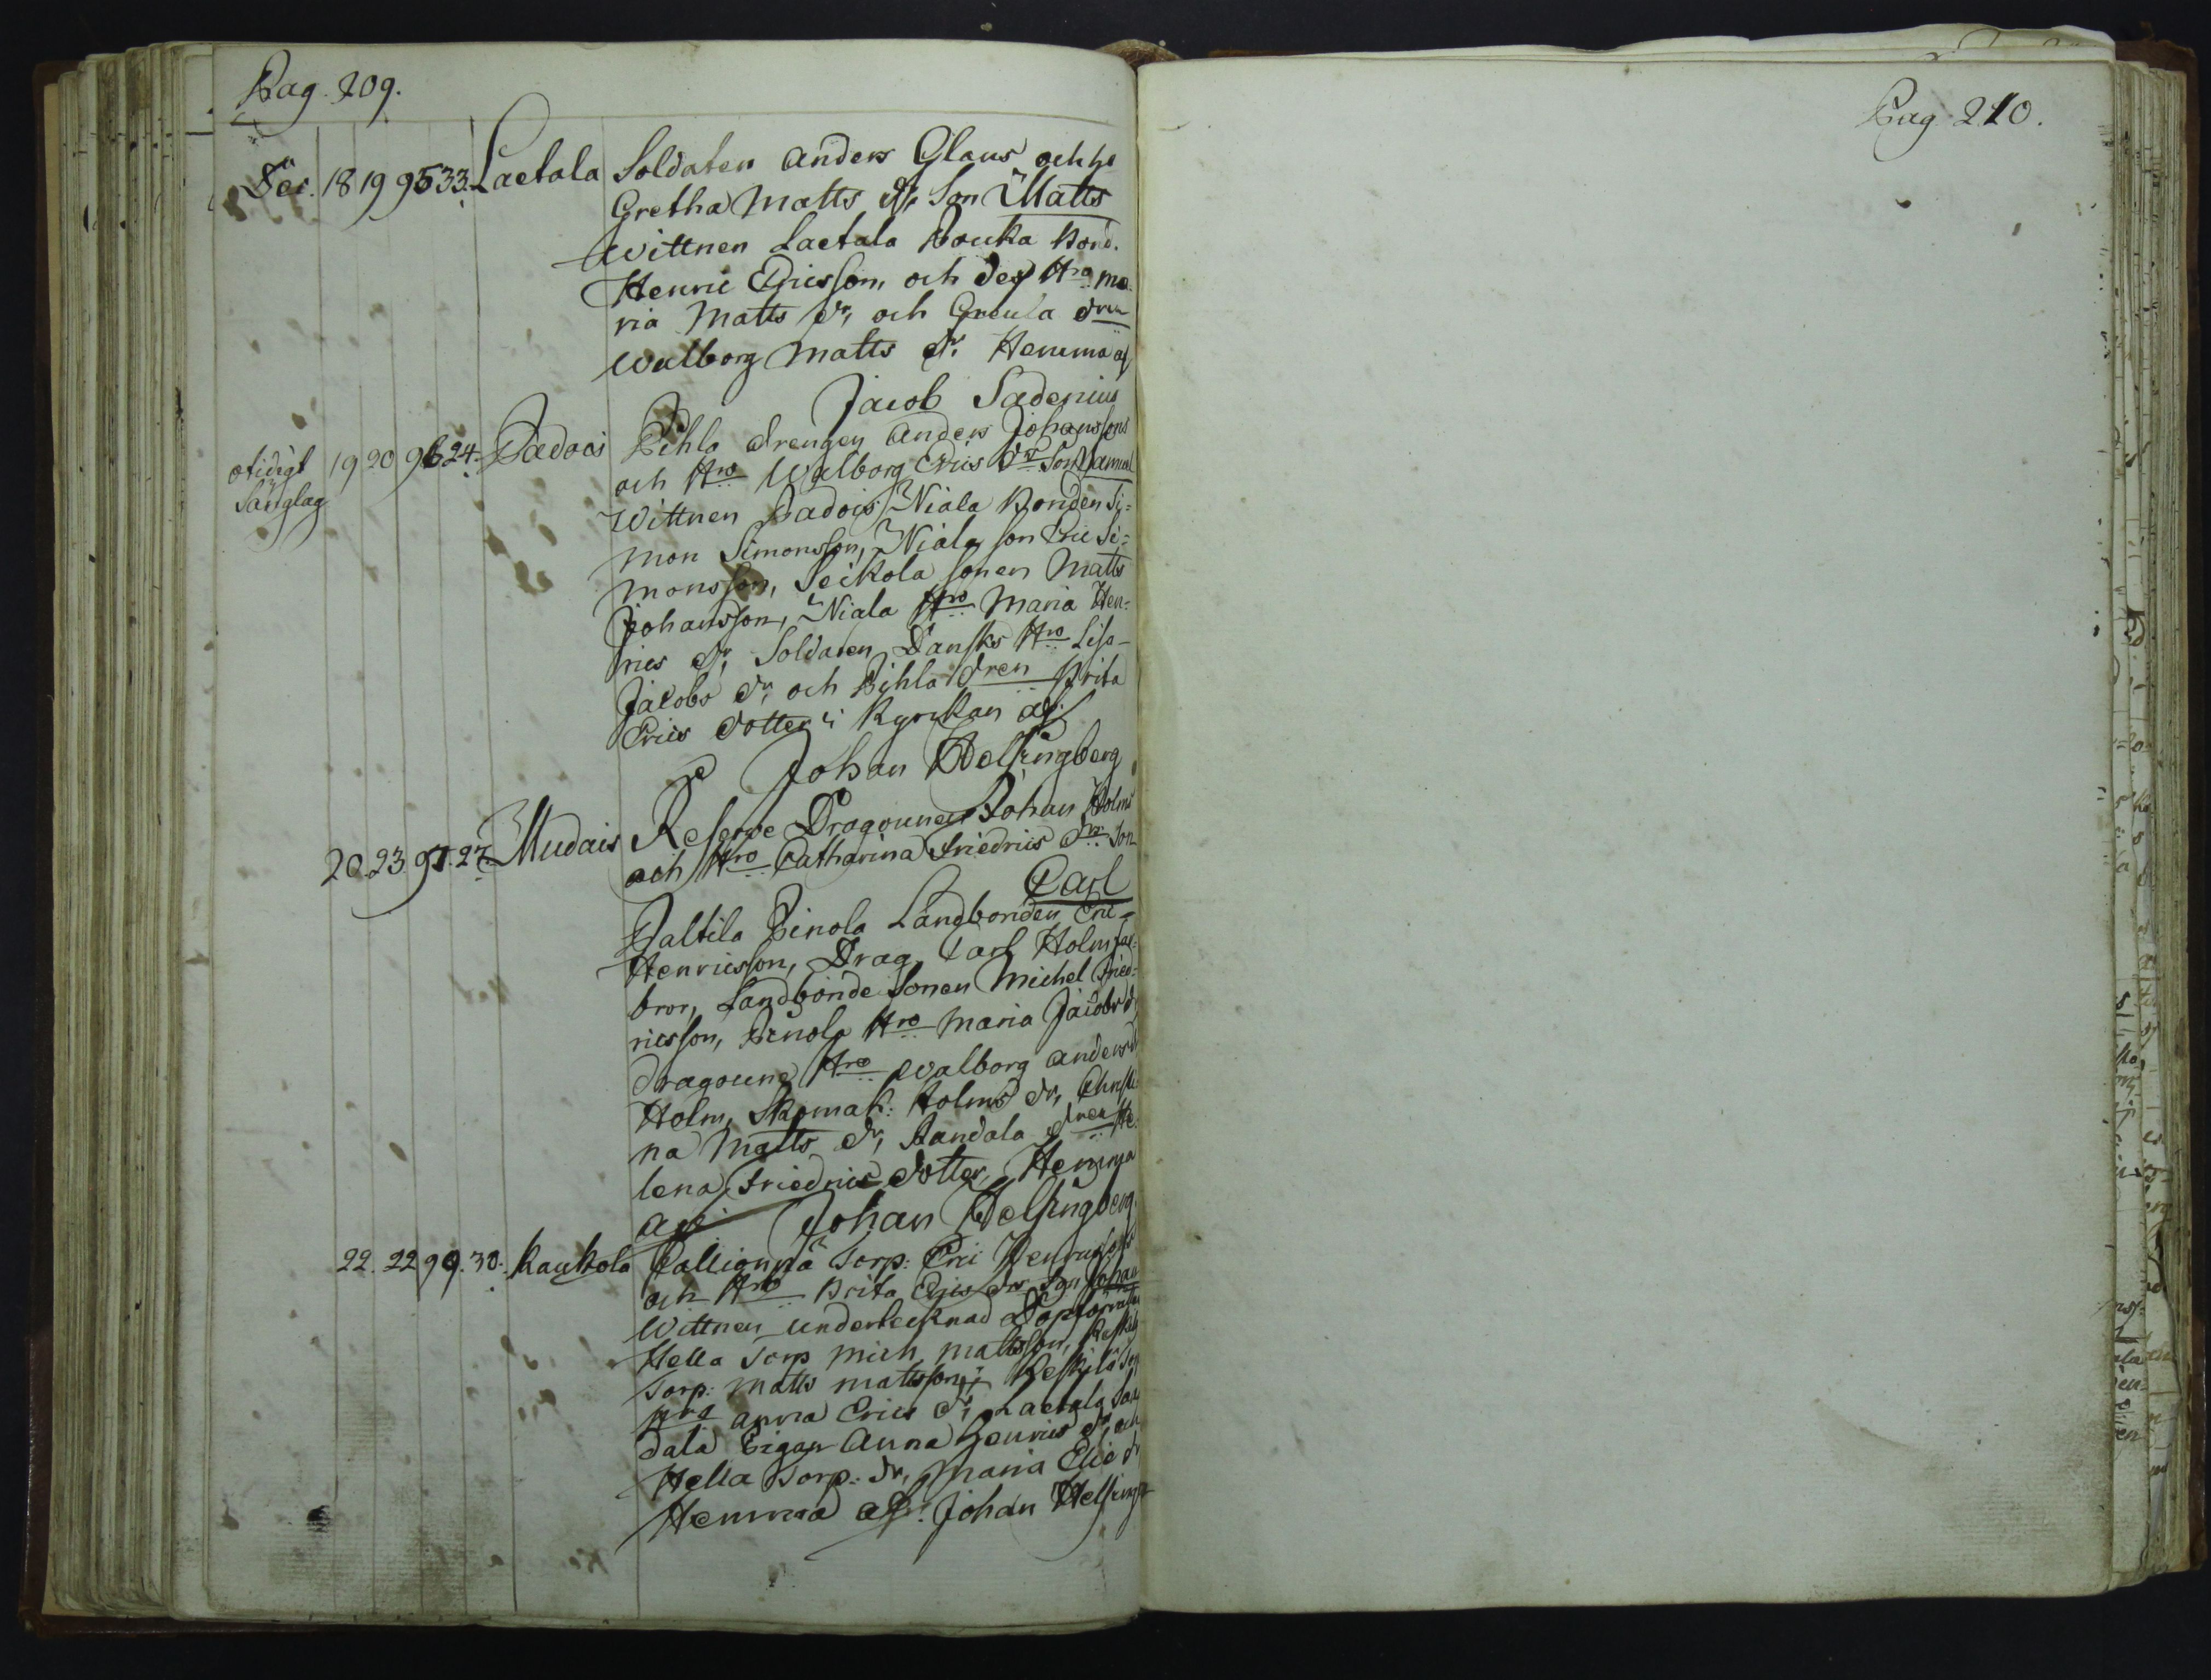 Pag. 209.
Dec. 18 19 95 33. Laetala Soldaten Anders Glans och h:o
Gretha Matts dr, Son Matts
Wittnen Laetala Bouka Bond.
Henric Ericsson, och des H:ro Ma-
ria Matts dr, och Greula dren
Walborg Matts dr. Hemma af
Jacob Sadenius
otidigt Sänglag 19 20 96 24. Padois Pihla drengen Anders Johanssons
och H:ro Walborg Erics dr Son Samuel
Wittnen Padois Niala Bonden Si-
mon Simonsson, Niala son Eric Si-
monsson, Seikola sonen Matts
Johansson, Niala H:ro Maria Hen-
rics dr, Soldaten Dansks H:ro Lisa
Jacobs dr, och Pihla dren Brita
Erics dotter i Kyrckan af
Johan Helsingberg
20. 23. 97. 27. Mudais Reserve Dragounen Johan Holms
och H:ro Catharina Friedrics dr Son
Carl
Paltila Pinola Landbonden Eric
Henricsson, Drag. Carl Holm far-
bror, Landbonde Sonen Michel Fried-
ricsson, Pinola H:ro Maria Jacobs d
dragoune H:ro Walborg Anders d
Holm, Skomak: Holms dr, Christi-
na Matts dr, Handala dren He-
lena Friedric dotter, Hemma
af Johan Helsingberg
22. 22 99. 30. Kaukola Torp: Eric Henricsons
och H:ro Brita Erics dr Son Johan
Wittnen undertecknad
Hella Torp Mich. Mattsson,
Torp: Matts Mattsson, Keskilä
H:ro Anna Erics dr, Laetala
dala Pigan Anna Henrics dr, och
Hella Torp: dr, Maria Elie d
Hemma af. Johan Helsing
Pag. 210.